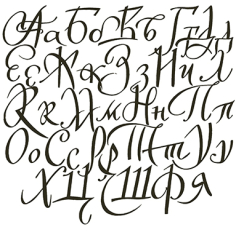 Аа Бб Вв Гг Дд
Ее Жж Зз Ии Л
Кк Мм Нн Пп
Оо Сс Р Тт Уу
Х Ц Ш Ф Я